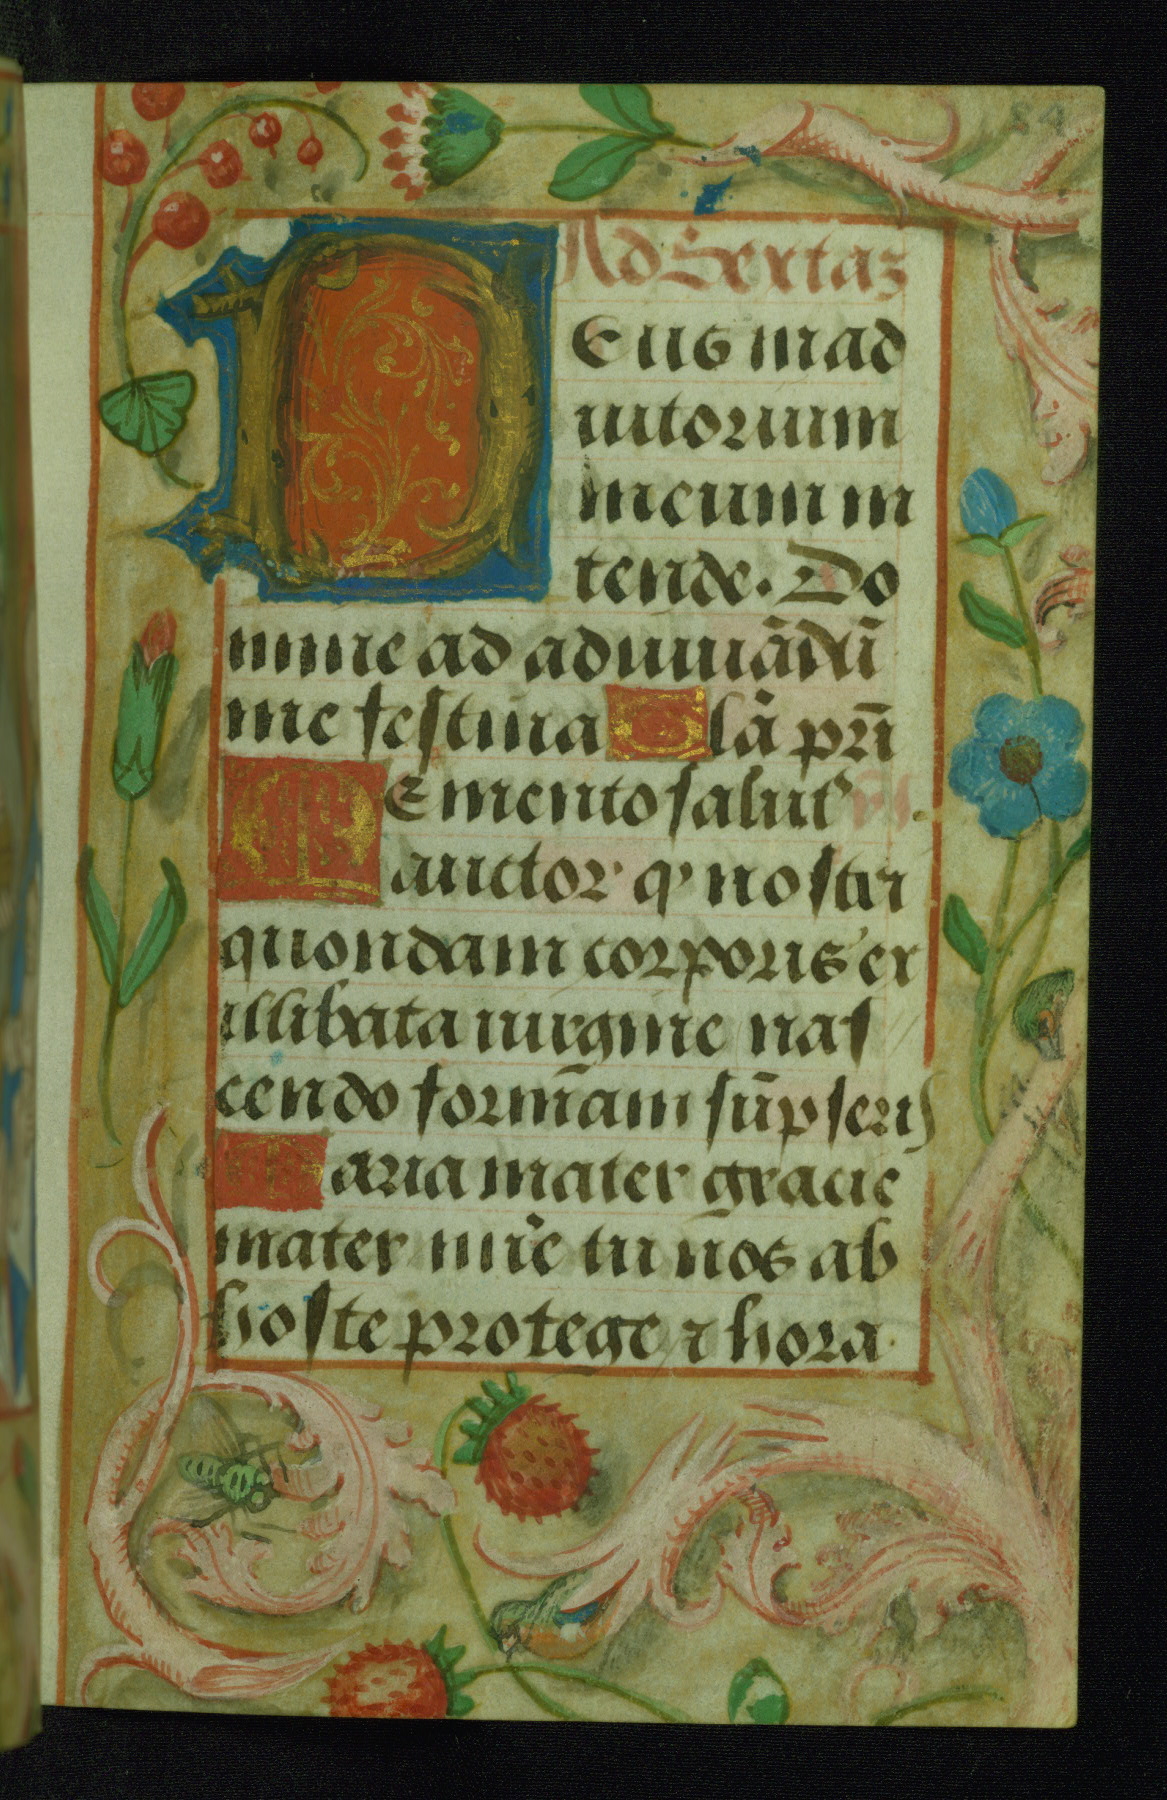 54
Ad Sextaz
Deus in ad
iutorium
meum in
tende. Do
mine ad adiuuādū
me festina Glā prī
Memento salut'
auctor q' nostri
quondam corporis ex
illibata uirgine nas
cendo formām sūpseris
Maria mater gracie
mater mīe tu nos ab
hoste protege ⁊ hora